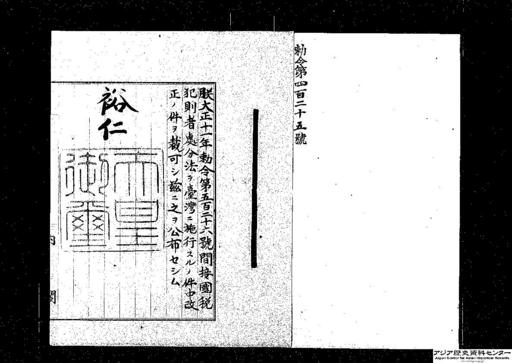 勅令第四百二十五號
朕大正十一年勅令第五百二十六號間接國税
犯則者處分法ヲ臺灣ニ施行スルノ件中改
正ノ件ヲ裁可シ玆ニ之ヲ公布セシム
裕仁
天皇
御璽
内閣
アジア歴史資料センター
Japan Center for Asian Historical Records